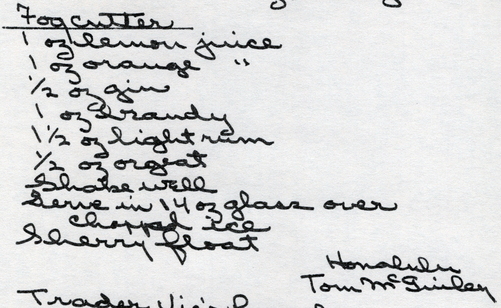 Fogcutter
1 oz lemon juice
1 oz orange "
1/2 oz gin
1 oz brandy
1 1/2 oz light rum
1/2 oz orgeat
Shake well
Serve in 14 oz glass over
chopped ice
Sherry float
Honolulu
Tom
Trader